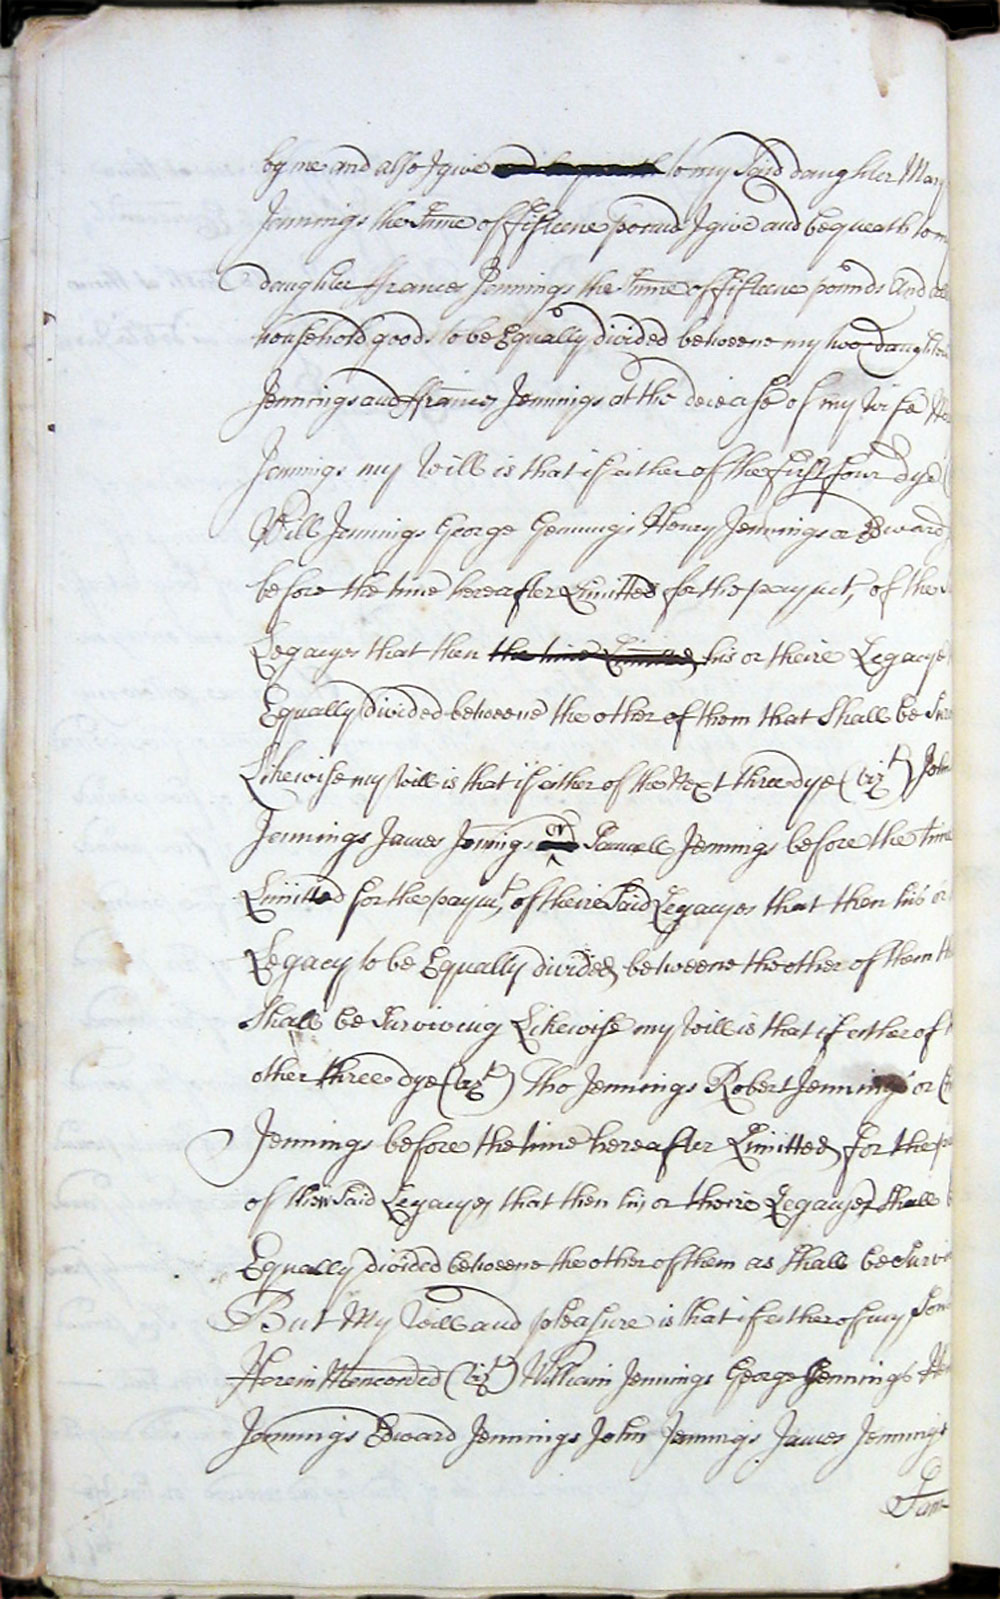 by me and also I give and bequeath to my Said daughter Mary
Jennings the Sume of ffifteene pound I give and bequeath to m
daughter ffrances Jennings the Sume of ffifteene pounds And al
household goods to be Equally divided betweene my two daughters
Jennings and ffrances Jennings at the decease of my Wife
Jennings my Will is that if either of the first four dye
Will Jennings George Gennings Henry Jennings or Edward
before the time hereafter Limitted for the paymt, of the
Legacyes that then the time Limitted his or theire Legacye
Equally divided betweene the other of them that Shall be Sur
Likewise my Will is that if either of the Next three dye (vizt) John
Jennings James Jenings or Samuell Jennings before the time
Limitted for the paymt, of theire Said Legacyes that then his or
Legacy to be Equally divided betweene the other of them th
Shall be Surviving Likewise my Will is that if either of
other three dye (vizt) Tho Jennings Robert Jennings or
Jennings before the time hereafter Limitted for the pa
of their Said Legacyes that then his or theire Legacyes Shall b
Equally divided betweene the other of them as Shall be Survi
But My Will and pleasure is that if either of my Sons
Herein Menconed (vizt) William Jennings George Jennings He
Jennings Edward Jennings John Jennings James Jennings
Sam